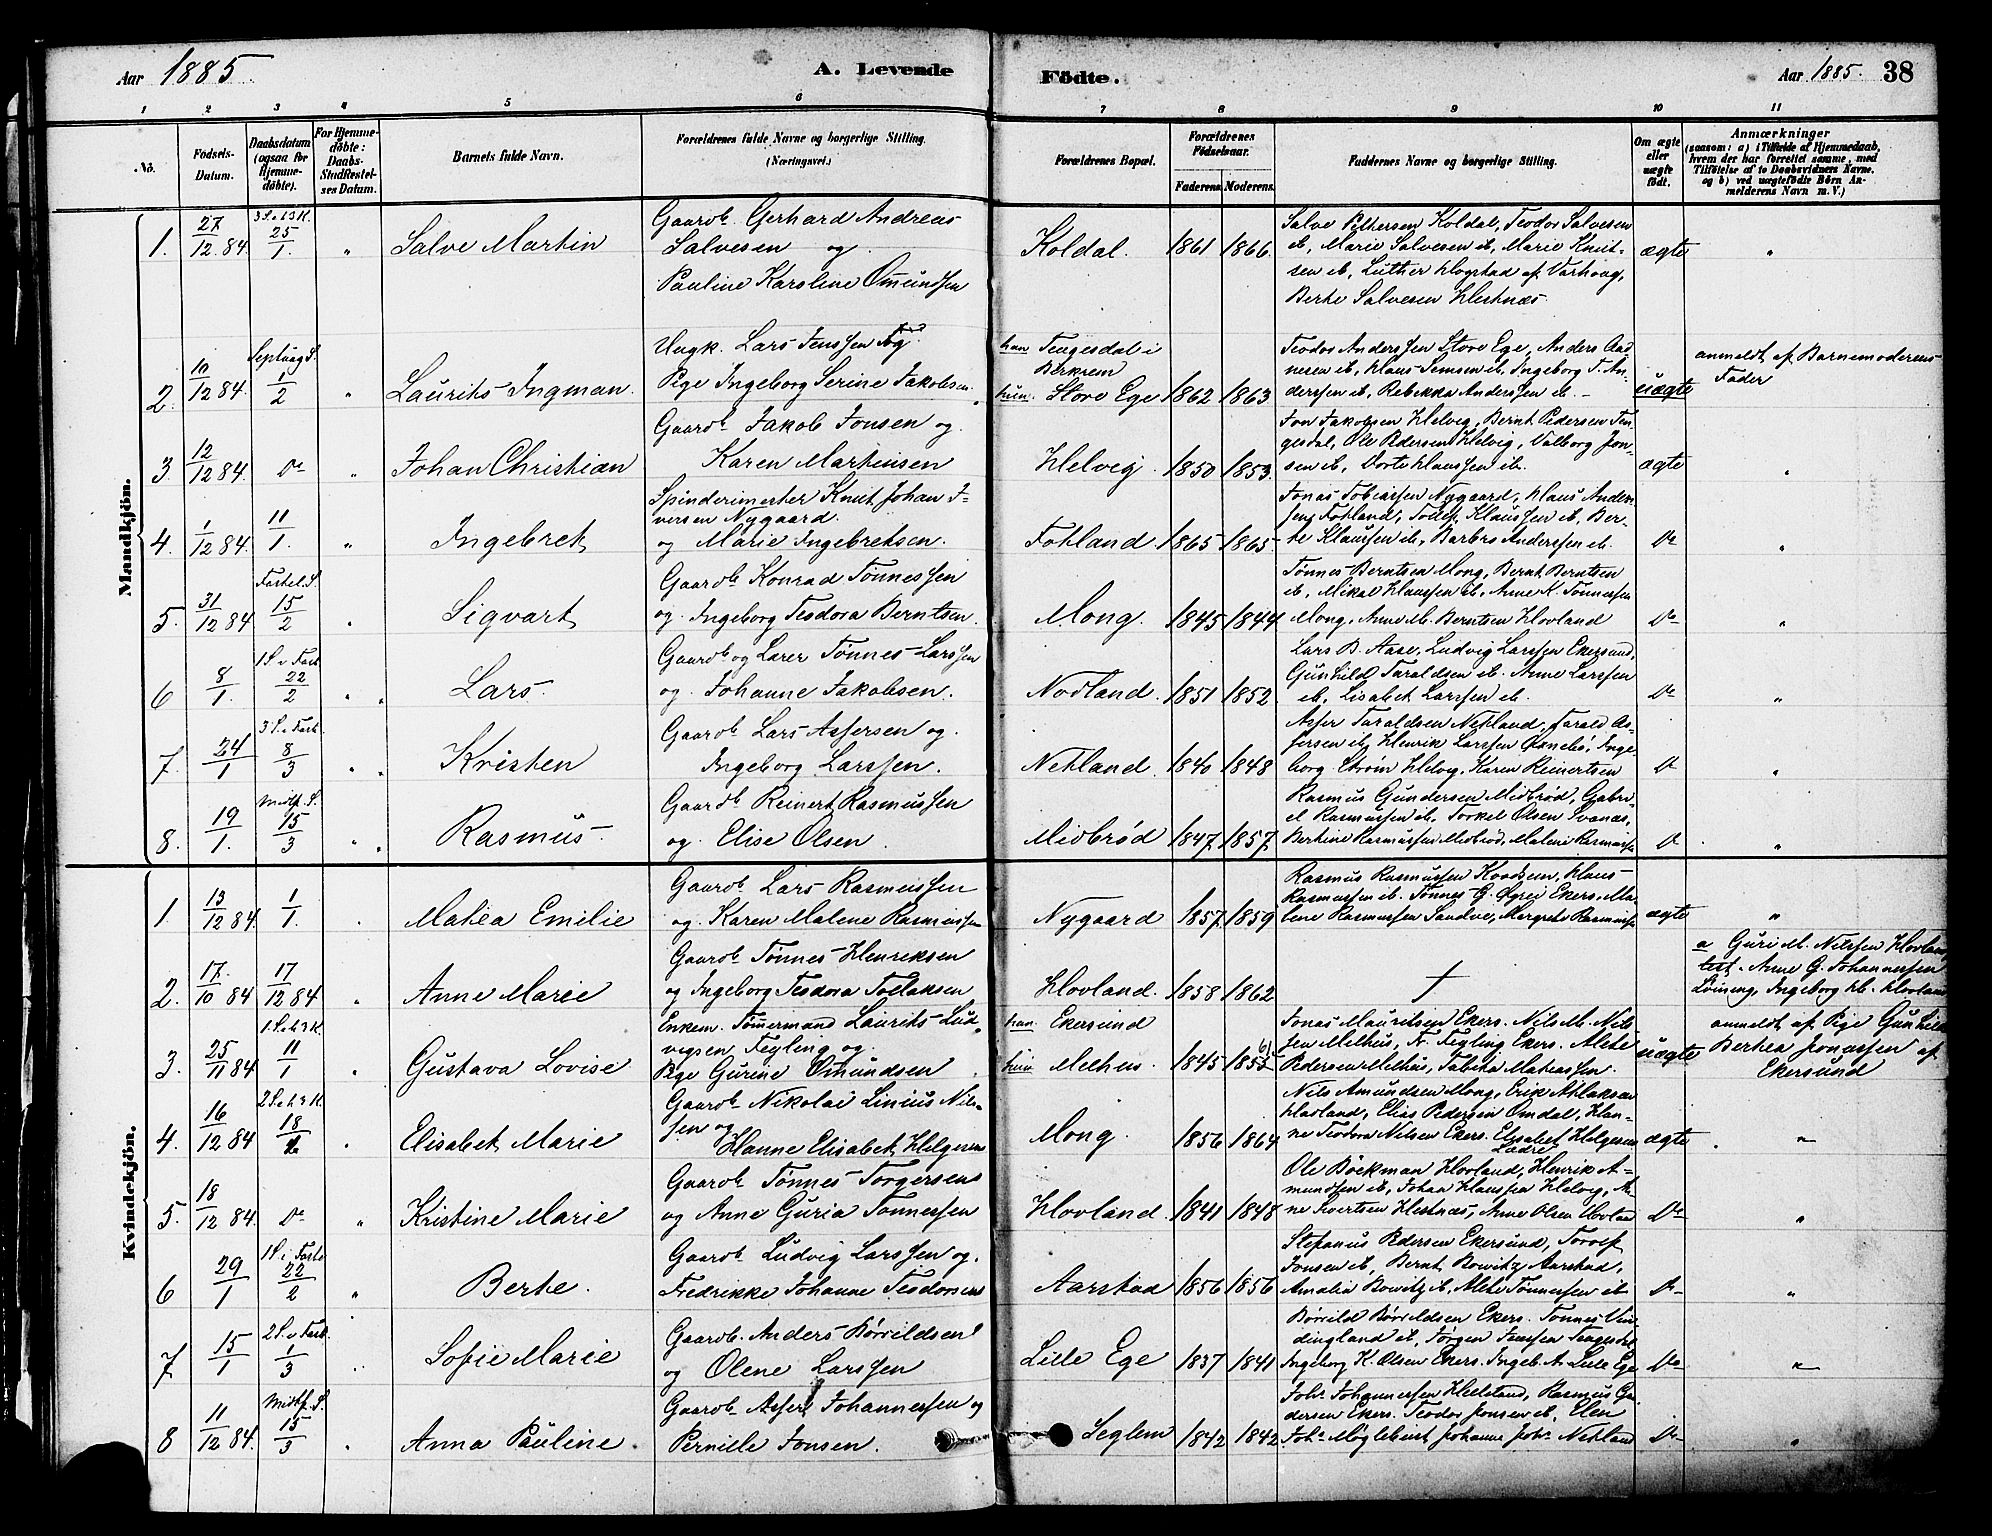 Aar 1885. A. Levende Födte. Aar 1885. 38
1 2 3 4 5 6 7 8 9 10 11
No.
Födsels-Datum.
Daabsdatum (ogsaa for Hjemme-döbte).
For Hjemme-döbte: Daabs-Stadfæstel-ses Datum.
Barnets fulde Navn.
Forældrenes fulde Navne og borgerlige Stilling. (Næringsvei.)
Forældrenes Bopæl.
Forældrenes Födselsaar.
Faderens. Moderens.
Faddernes Navne og borgerlige Stilling.
Om ægte eller uægte födt.
Anmærkninger
(saasom: a) i Tilfælde af Hjemmedaab,
hvem der har forrettet samme, med
Tilföielse af to Daabsvidners Navne,
og b) ved uægtefödte Börn An-
melderens Navn m. V.)
Mandkjön.
1. 27/12 84. 3 S. e. h. 3 K. 25/1. " Salve Martin
Gaardb. Gerhard Andreas
Salvesen og
Pauline Karoline Omundsen
Koldal. 1861 1866.
Salve Pettersen Koldal, Teodor Salvesen
ib, Marie Salvesen ib, Marie Knut-
sen ib, Luther Hogstad af Varhaug,
Berte Salvesen Hestnæs.
ægte "
2. 10/12 84. Septuag S. 1/2 " Laurits Ingman.
Ungk. Lars Jenssen og
Pige Ingeborg Serine Jakobsen.
han Tengesdal i
Birkrem
hun. Store Ege 1862 1863
Teodor Anderssen Store Ege, Anders Aad-
nesen ib, Klaus Jensen ib, Ingeborg T. An-
derssen ib, Rebekka Anderssen ib. -
uægte
anmeldt af Barnemoderens
Fader
3. 12/12 84. Do " Johan Christian
Gaardb. Jakob Jonsen og
Karen Martinsen
Helvig. 1850 1853.
Jon Jakobsen Helvig, Bernt Pedersen Ten-
gesdal, Ole Pedersen Helvig, Valborg Jon-
sen ib, Dorte Klaussen ib.
ægte "
4. 1/12 84. 11/1. " Ingebret
Spinderimester Knut Johan I-
versen Nygaard.
og Marie Ingebretsen.
Fotland 1865 1865.
Jonas Tobiassen Nygaard, Klaus Anders-
sen Fotland, Klaussen ib, Ber-
te Klaussen ib, Barbro Anderssen ib.
Do "
5. 31/12 84 Fastel. S. 15/2 " Sigvart
Gaardb Konrad Tønnessen
og Ingeborg Teodora Berntsen.
Mong. 1845 1844
Tønnes Berntsen Mong, Bernt Berntsen
ib, Mikal Klaussen ib, Anne K. Tønnessen
Mong, Anne M. Berntsen Hovland
Do "
6 8/1. 1 S. i Fast. 22/2 " Lars.
Gaardb og Lærer Tønnes Larssen
og Johanne Jakobsen.
Nodland. 1851 1852.
Lars B. Aase, Ludvig Larssen Ekersund,
Gunhild Taraldsen ib. Anne Larssen
ib, Lisabet Larssen ib.
Do "
7. 24/1 3 S. i Fast. 8/3 " Kristen
Gaardb Lars Assersen og
Ingeborg Larssen.
Netland. 1840 1848
Asser Taraldsen Netland, Tarald As-
sersen ib, Henrik Larssen, Inge-
borg Strøm Helvig, Karen Reinertsen
Do "
8. 19/1. Midf. S. 15/3 " Rasmus
Gaardb Reinert Rasmussen
og Elise Olsen.
Midbrød 1847 1857.
Rasmus Gundersen Midbrød, Gabri-
el Rasmussen ib. Torkel Olsen Svanæs,
Bertine Rasmussen Midbrød, Malene Rasmussen
Do "
Kvindekjön.
1 13/12 84. 1/1. " Matea Emilie
Gaardb Lars Rasmussen
og Karen Malene Rasmussen
Nygaard 1857. 1859
Rasmus Rasmussen, Klaus
Rasmussen ib. Tønnes G. Ekers., Ma-
lene Rasmussen Sandve, Margrete Rasmussen
ægte "
2. 17/10 84 17/12 84 " Anne Marie
Gaardb Tønnes Henriksen
og Ingeborg Teodora
Hovland. 1858 1862
†
a Guri M. Nilssen Hovland
test. Anne G. Johannessen
Leining, Ingeborg Hovland
3. 25/11 84 1. S. e. h. 3 K. 11/1 " Gustava Lovise
Enkem. Tømmermand Laurits Lud-
vigsen Tegling og
Pige Gurine Omundsen
han. Ekersund
hun Melhus. 1845 1855
Jonas Mauritsen Ekers. Nils M. Nils-
sen Melhus, N. Tegling Ekers. Alete
Pedersen Melhus, Tabita Matiassen.
uægte
anmeldt af Pige Gunhild
Bertea Jonassen af
Ekersund
4. 16/12 84 2 S. e. h. 3 K. 18/1 " Elisabet Marie
Gaardb Nikolai Linius Nils-
sen og
Hanne Elisabet Helgesen
Mong. 1856 1864
Nils Amundsen Mong, Erik Atlaksen
Hovland, Elias Pedersen Omdal, Han-
ne Teodora Nilsen Ekers. Elisabet Helgesen
Lædre
ægte "
5. 18/12 84. Do " Kristine Marie
Gaardb Tønnes Torgersen
og Anne Guria Tønnessen
Hovland. 1841 1848
Ole Bøckman Hovland, Henrik A-
mundsen ib, Johan Klaussen Helvig, An-
ne Sivertsen Hestnæs, Anne Olsen Hovland
Do "
6 29/1 1 S. i Faste 22/2 " Berte.
Gaardb Ludvig Larssen og
Fredrikke Johanne Teodorsen
Aarstad 1856 1856
Stefanus Pedersen Ekersund, Torolf
Jonsen ib, Bernt Bowitz Aarstad,
Amalia Bowitz ib, Alete Tønnessen ib
Do "
7 15/1 2 S. i Fast. 1/3 " Sofie Marie
Gaardb. Anders Børrildsen
og Olene Larssen
Lille Ege 1837 1841
Børrild Børrildsen Ekers. Tønnes Vin-
dingland ib, Jørgen Jenssen Tengesdal
Ingeborg K. Olsen Ekers. Ingeb. A. Lille Ege
Do "
8 11/12 84. Midf. S. 15/3 " Anna Pauline
Gaardb Asser Johannessen og
Pernille Jonsen.
Seglem 1842 1842
Johs. Johannessen Helleland, Rasmus Gu-
dersen Ekers. Teodor Jonsen ib, Elen
Johs. Møglebust Johanne Johs. Netland
Do "